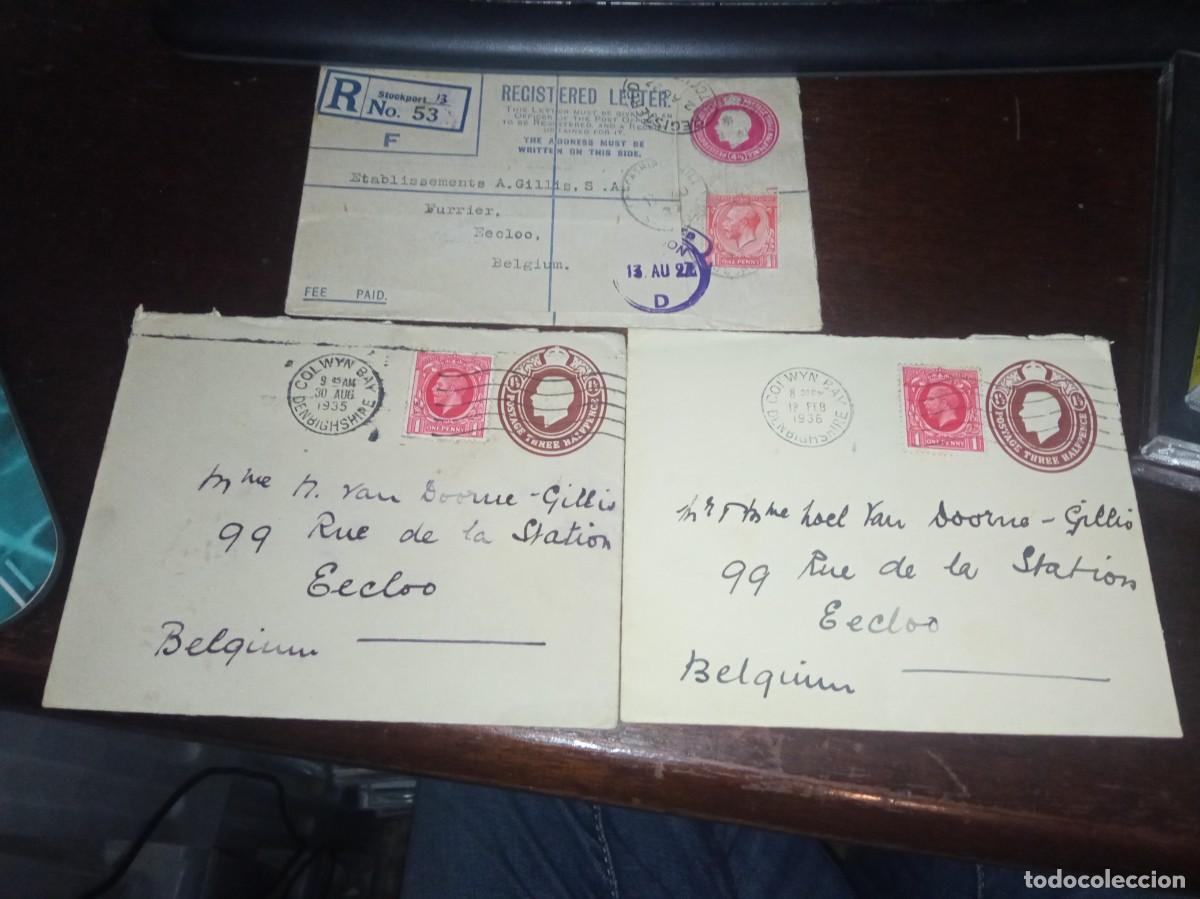 R Stockport 13
No. 53
F
REGISTERED LETTER.
THIS LETTER MUST BE GIVEN TO AN
OFFICER OF THE POST OFFICE
TO BE REGISTERED, AND A RECEIPT
OBTAINED FOR IT.
THE ADDRESS MUST BE
WRITTEN ON THIS SIDE.
Etablissements A.Gillis, S.A.
Furrier,
Eecloo,
Belgium.
FEE PAID.
REGISTERED
ONE PENNY
13 AU 27
D
COLWYN BAY
9 45 AM
30 AUG
1935
DENBIGHSHIRE
1 ONE PENNY 1
POSTAGE THREE HALFPENCE
Mme N. Van Doorne-Gillis
99 Rue de la Station
Eecloo
Belgium
COLWYN BAY
8 PM
12 FEB
1936
DENBIGHSHIRE
1 ONE PENNY 1
POSTAGE THREE HALFPENCE
Mr & Mme Van Doorne-Gillis
99 Rue de la Station
Eecloo
Belgium
todocoleccion